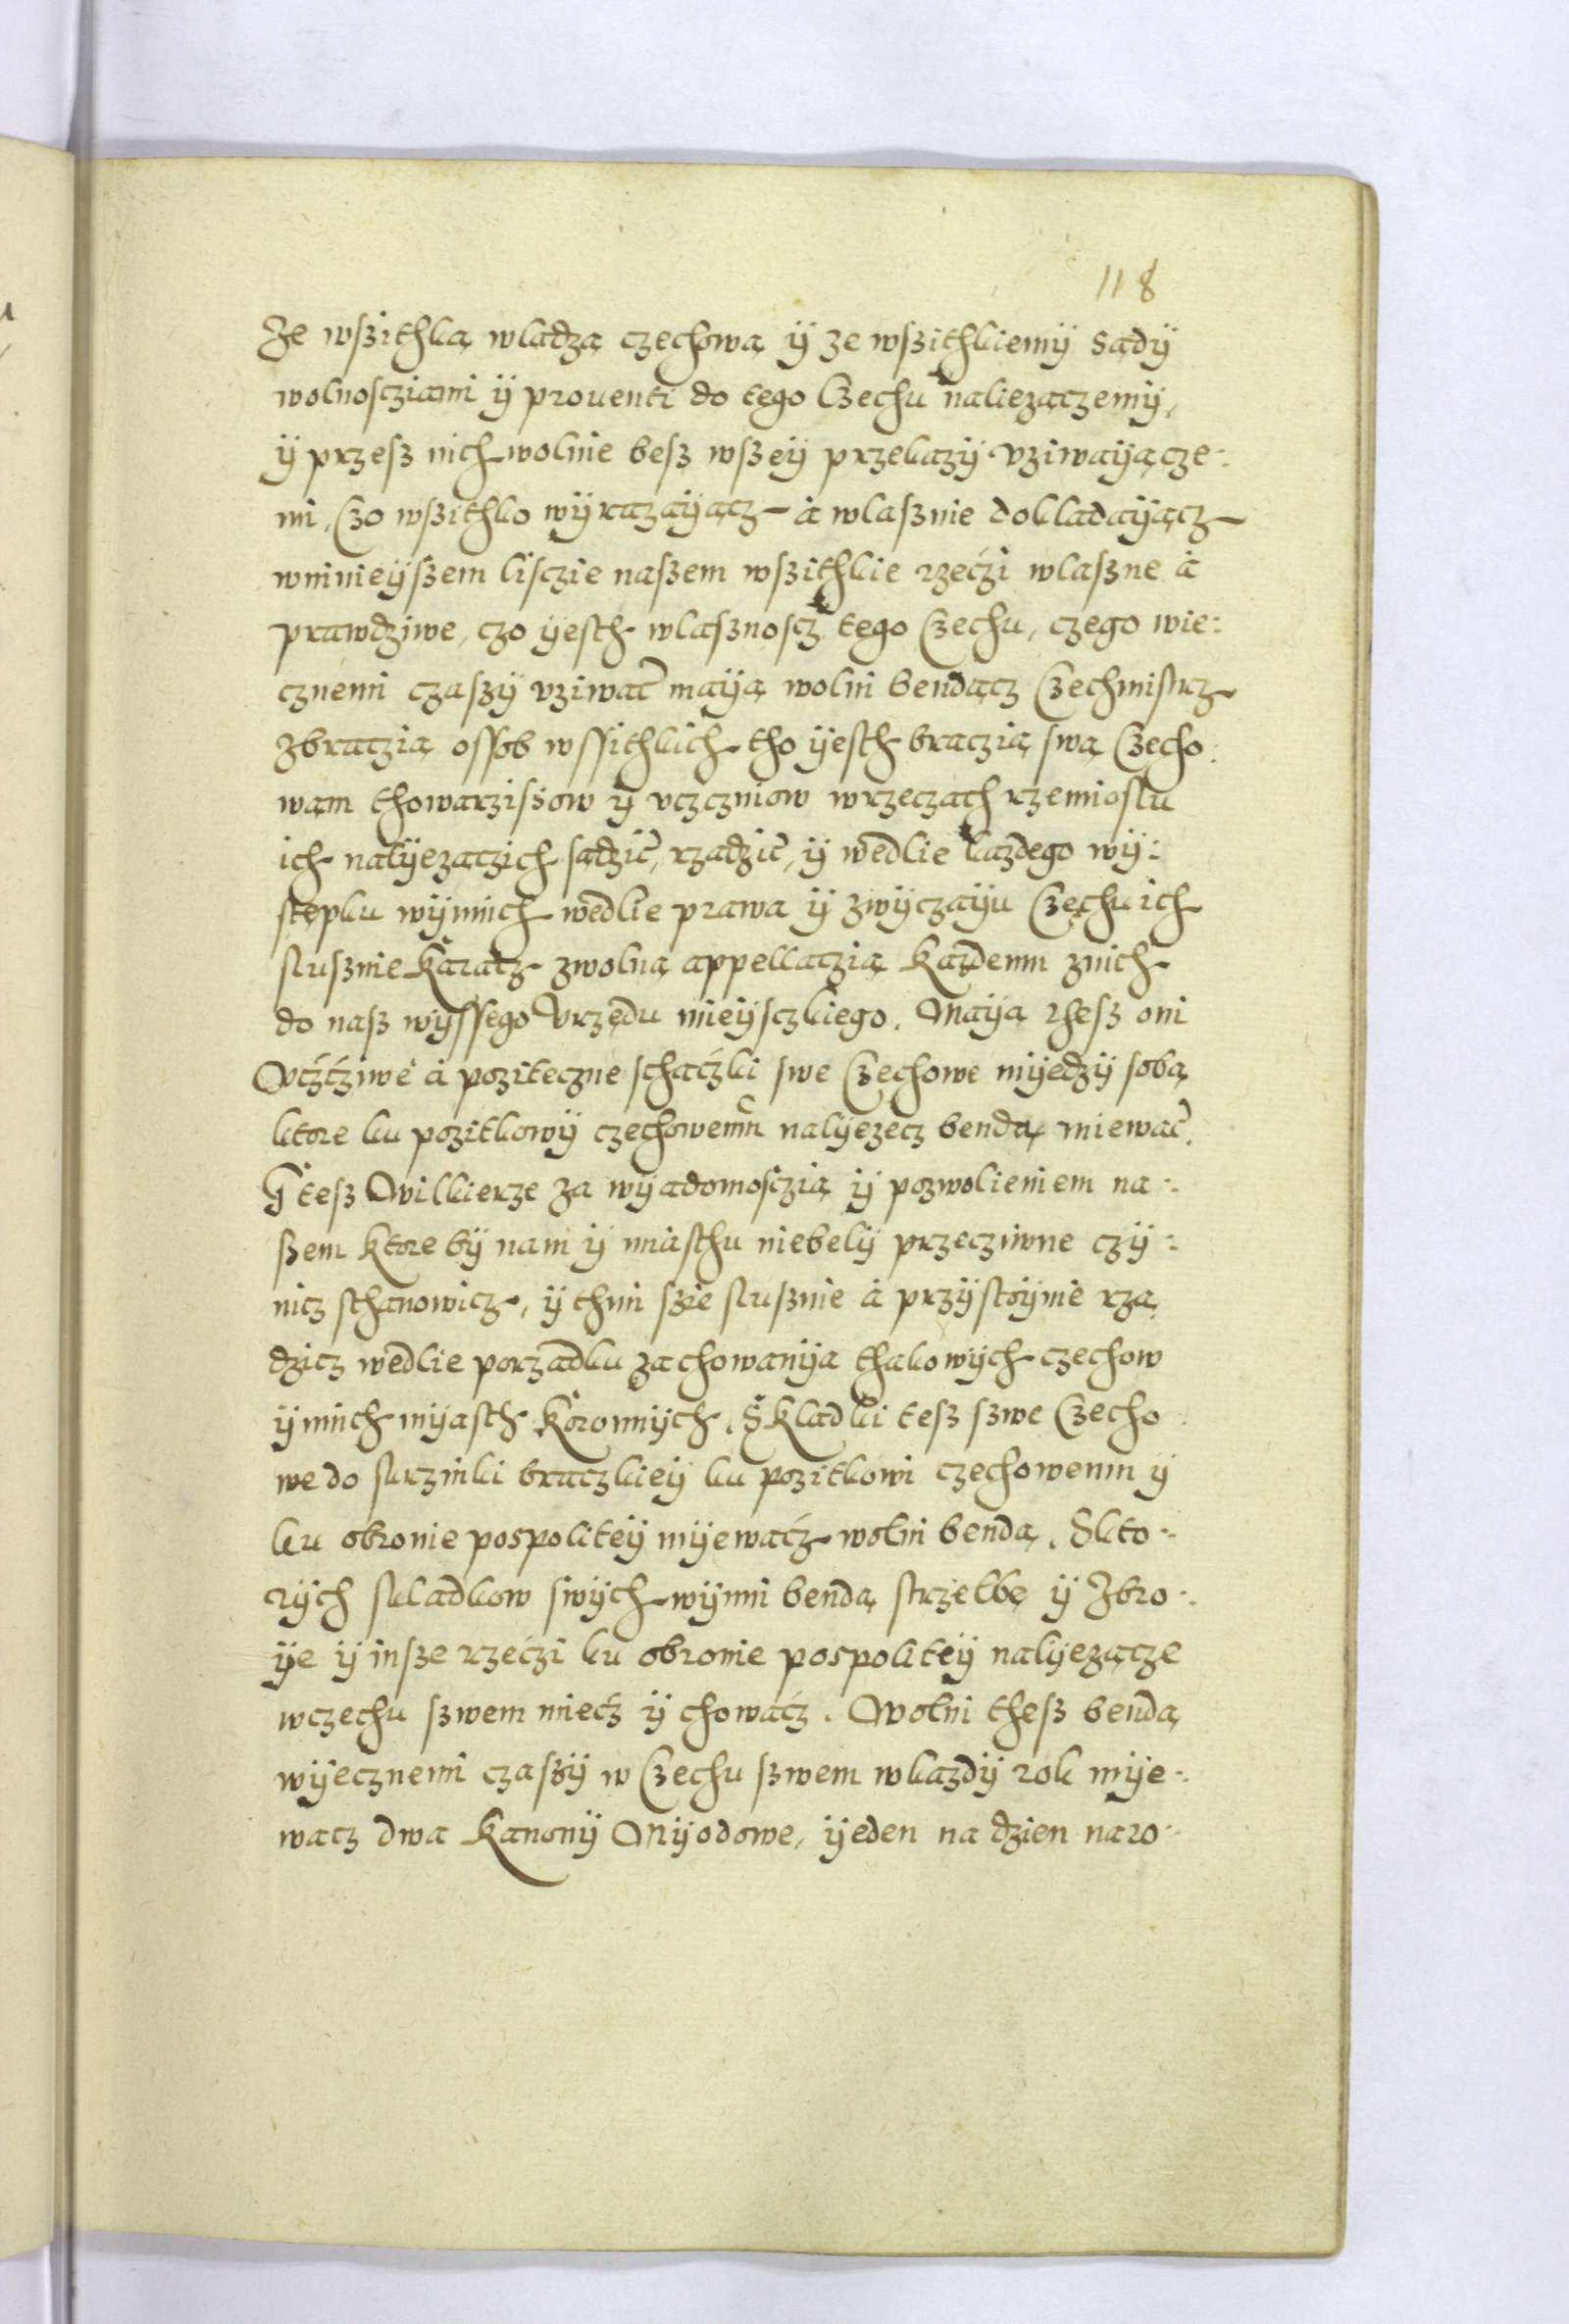 118
Ze wszithką wladzą czechową ÿ ze wszithkiemÿ sądÿ
wolnoscziami ÿ prouenti do tego Czechu naliezączemÿ,
ÿ przesz nich wolnie besz wszeÿ przekazÿ vziwaÿącze⸗
mi, Czo wszithko wÿrazaÿącz à wlasznie dokladaÿącz
wninieÿszem lisczie naszem wszithkie rzeczi wlaszne à
prawdziwe, czo ÿesth wlasznoscz tego Czechu, czego wie⸗
cznemi czaszÿ vziwać maÿą wolni bendącz Czechmistrz
zbraczią ossob wssithkich tho ÿesth braczią swą Czecho⸗
wąm thowarziszow ÿ vczczniow wrzeczach rzemiosłu
ich nalÿezączich sądzić, rządzić, ÿ wedlie każdego wÿ⸗
stępku wÿnnich wedlie prawa ÿ zwÿczaÿu Czechu ich
slusznie Karacz zwolną appellaczią Każdemu znich
do nasz wÿssego Vrzędu mieÿsczkiego. Maÿą thesz oni
Vczcziwe à poziteczne schaczki swe Czechowe mÿedzÿ sobą
ktore ku pozitkowÿ czechowemu nalÿezecz bendą miewać.
Y tesz Willkierze za wÿadomosczią ÿ pozwolieniem na⸗
szem ktore bÿ nam ÿ miasthu niebelÿ przecziwne czÿ⸗
nicz sthanowicz, ÿ thmi szie slusznie à przÿstoÿnie rzą
dzicz wedlie porządku zachowanÿa thakowÿch czechow
ÿ innich mÿasth Koronnÿch. Składki tesz szwe Czecho
we do skrzinki braczkieÿ ku pozitkowi czechowemu ÿ
ku obronie pospoliteÿ mÿewacz wolni bendą. Skto⸗
rÿch składkow swÿch wÿnni bendą strzelbę ÿ Zbro⸗
ÿe ÿ insze rzeczi ku obronie pospoliteÿ nalÿezącze
wczechu szwem miecz ÿ chowacz. Wolni thesz bendą
wÿecznemi czaszÿ w Czechu szwem wkażdÿ rok mÿe⸗
wacz dwa Kanonÿ Mÿodowe, ÿeden na dzien naro⸗